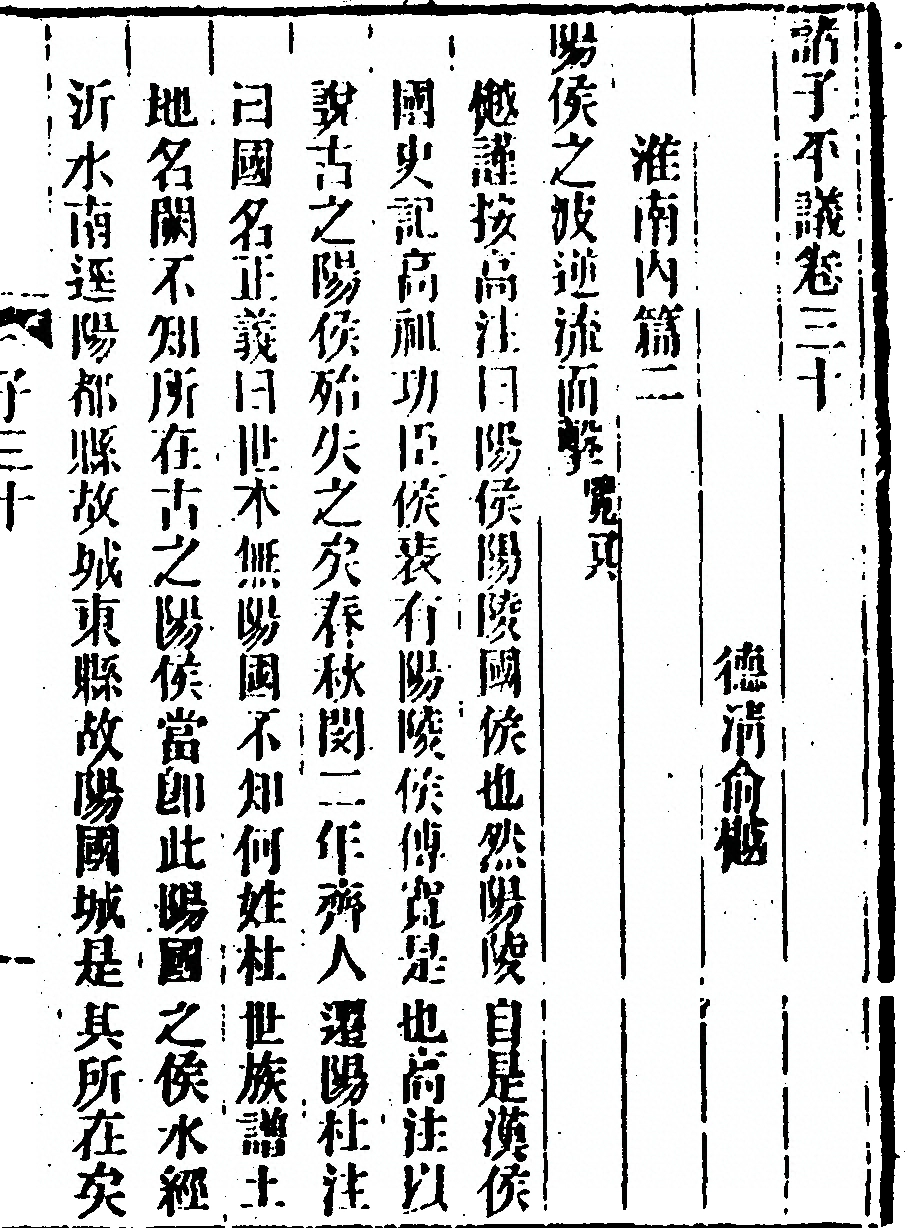 諸子平議卷三十
德清俞樾
淮南內篇二
陽侯之波逆流而擊覽冥
樾謹按高注曰陽侯陽陵國侯也然陽陵自是漢侯
國史記高祖功臣侯表有陽陵侯傅寬是也高注以
說古之陽侯殆失之矣春秋閔二年齊人遷陽杜注
曰國名正義曰世本無陽國不知何姓杜世族譜土
地名闕不知所在古之陽侯當卽此陽國之侯水經
沂水南逕陽都縣故城東縣故陽國城是其所在矣
子三十